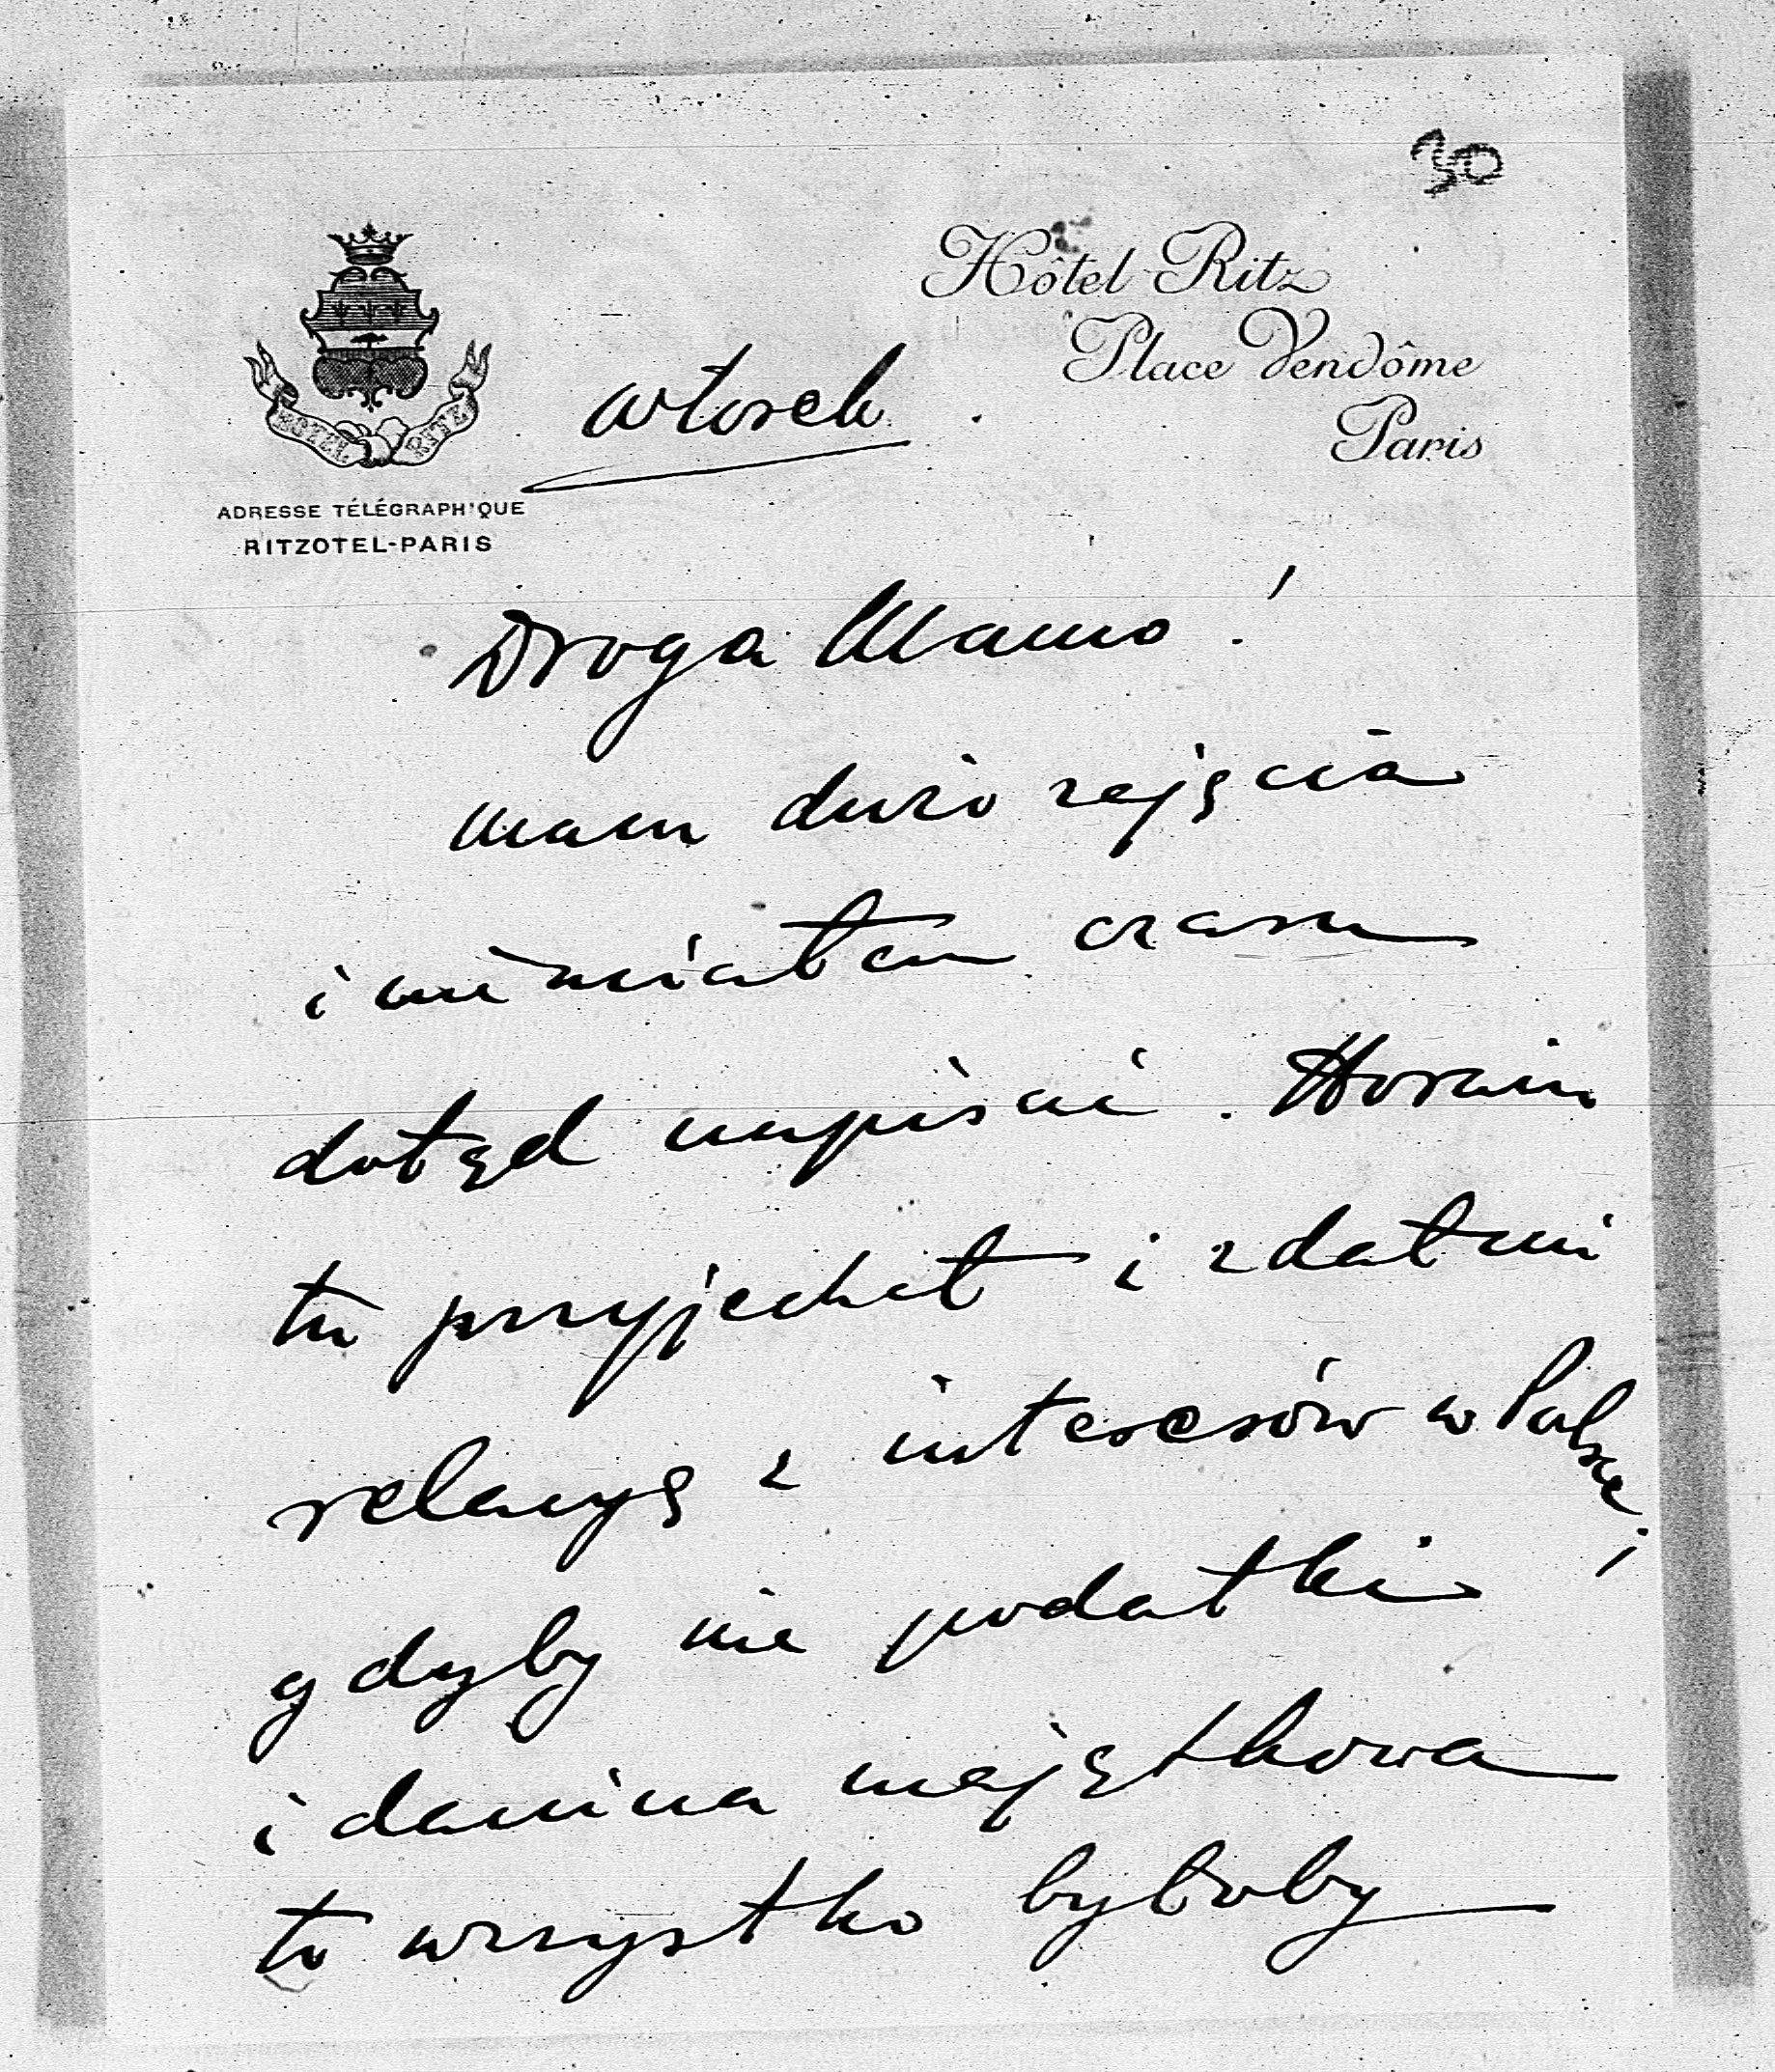 30
Hôtel Ritz
Place Vendôme
Paris
HOTEL RITZ
ADRESSE TÉLÉGRAPHIQUE
RITZOTEL-PARIS
wtorek
Droga Mamo!
Mam dużo zajęcia
i nie miałem czasu
dotąd napisać. Horain
tu przyjechał i zdał mi
relacyę z interesów w Polsce;
gdyby nie podatki
i danina majątkowa
to wszystko byłoby